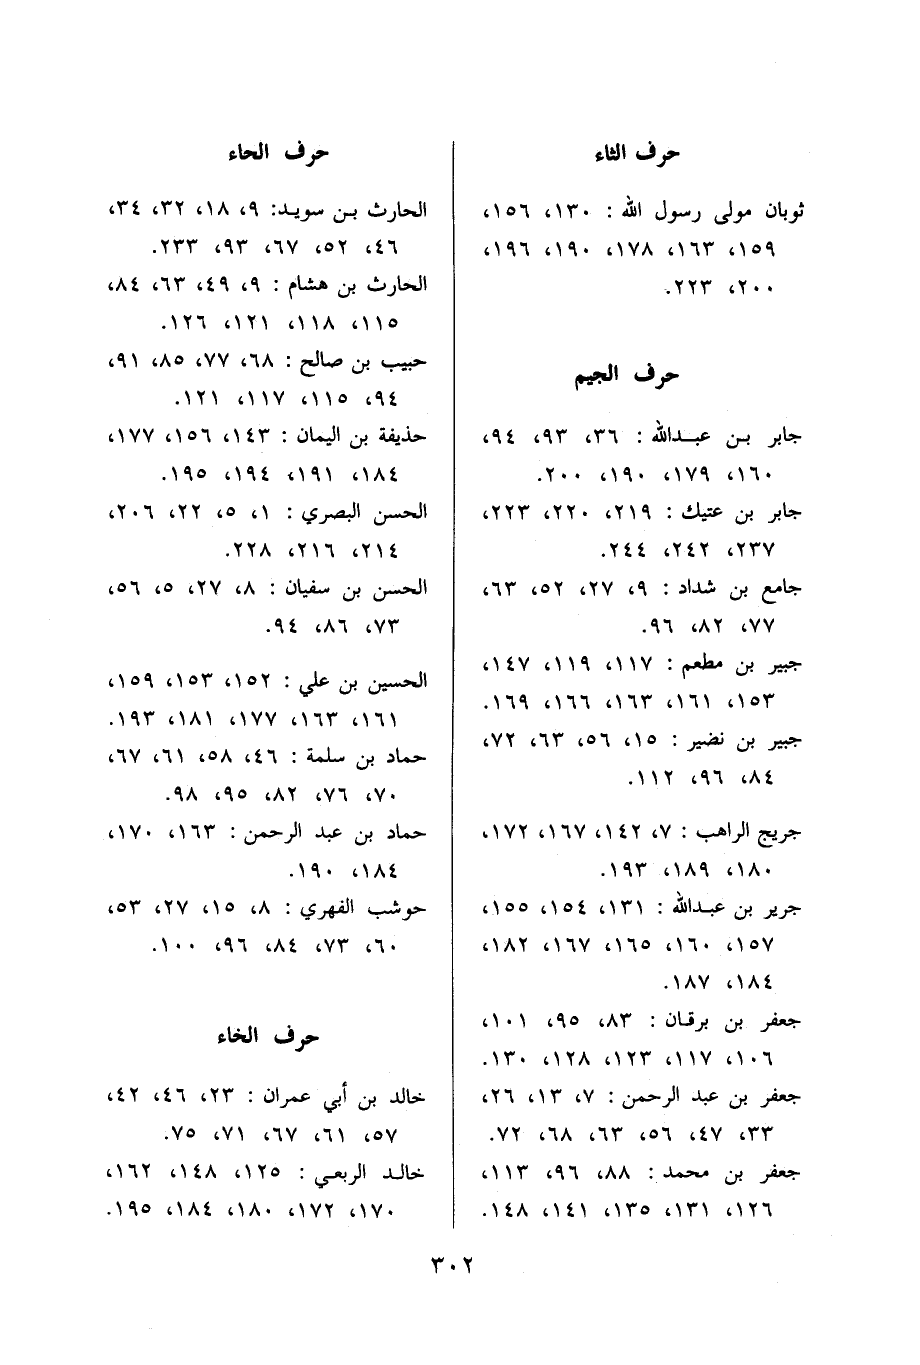 حرف الثاء
ثوبان مولى رسول الله : ١٣٠، ١٥٦،
١٥٩، ١٦٣، ١٧٨، ١٩٠، ١٩٦،
٢٠٠، ٢٢٣.
حرف الجيم
جابر بن عبدالله : ٣٦، ٩٣، ٩٤،
١٦٠، ١٧٩، ١٩٠، ٢٠٠.
جابر بن عتيك : ٢١٩، ٢٢٠، ٢٢٣،
٢٣٧، ٢٤٢، ٢٤٤.
جامع بن شداد : ٩، ٢٧، ٥٢، ٦٣،
٧٧، ٨٢، ٩٦.
جبير بن مطعم : ١١٧، ١١٩، ١٤٧،
١٥٣، ١٦١، ١٦٣، ١٦٦، ١٦٩.
جبير بن نضير : ١٥، ٥٦، ٦٣، ٧٢،
٨٤، ٩٦، ١١٢.
جريج الراهب : ٧، ١٤٢، ١٦٧، ١٧٢،
١٨٠، ١٨٩، ١٩٣.
جرير بن عبدالله : ١٣١، ١٥٤، ١٥٥،
١٥٧، ١٦٠، ١٦٥، ١٦٧، ١٨٢،
١٨٤، ١٨٧.
جعفر بن برقان : ٨٣، ٩٥، ١٠١،
١٠٦، ١١٧، ١٢٣، ١٢٨، ١٣٠.
جعفر بن عبد الرحمن : ٧، ١٣، ٢٦،
٣٣، ٤٧، ٥٦، ٦٣، ٦٨، ٧٢.
جعفر بن محمد : ٨٨، ٩٦، ١١٣،
١٢٦، ١٣١، ١٣٥، ١٤١، ١٤٨.
حرف الحاء
الحارث بن سويد: ٩، ١٨، ٣٢، ٣٤،
٤٦، ٥٢، ٦٧، ٩٣، ٢٣٣.
الحارث بن هشام : ٩، ٤٩، ٦٣، ٨٤،
١١٥، ١١٨، ١٢١، ١٢٦.
حبيب بن صالح : ٦٨، ٧٧، ٨٥، ٩١،
٩٤، ١١٥، ١١٧، ١٢١.
حذيفة بن اليمان : ١٤٣، ١٥٦، ١٧٧،
١٨٤، ١٩١، ١٩٤، ١٩٥.
الحسن البصري : ١، ٥، ٢٢، ٢٠٦،
٢١٤، ٢١٦، ٢٢٨.
الحسن بن سفيان : ٨، ٢٧، ٥، ٥٦،
٧٣، ٨٦، ٩٤.
الحسين بن علي : ١٥٢، ١٥٣، ١٥٩،
١٦١، ١٦٣، ١٧٧، ١٨١، ١٩٣.
حماد بن سلمة : ٤٦، ٥٨، ٦١، ٦٧،
٧٠، ٧٦، ٨٢، ٩٥، ٩٨.
حماد بن عبد الرحمن : ١٦٣، ١٧٠،
١٨٤، ١٩٠.
حوشب الفهري : ٨، ١٥، ٢٧، ٥٣،
٦٠، ٧٣، ٨٤، ٩٦، ١٠٠.
حرف الخاء
خالد بن أبي عمران : ٢٣، ٤٦، ٤٢،
٥٧، ٦١، ٦٧، ٧١، ٧٥.
خالد الربعي : ١٢٥، ١٤٨، ١٦٢،
١٧٠، ١٧٢، ١٨٠، ١٨٤، ١٩٥.
٣٠٢